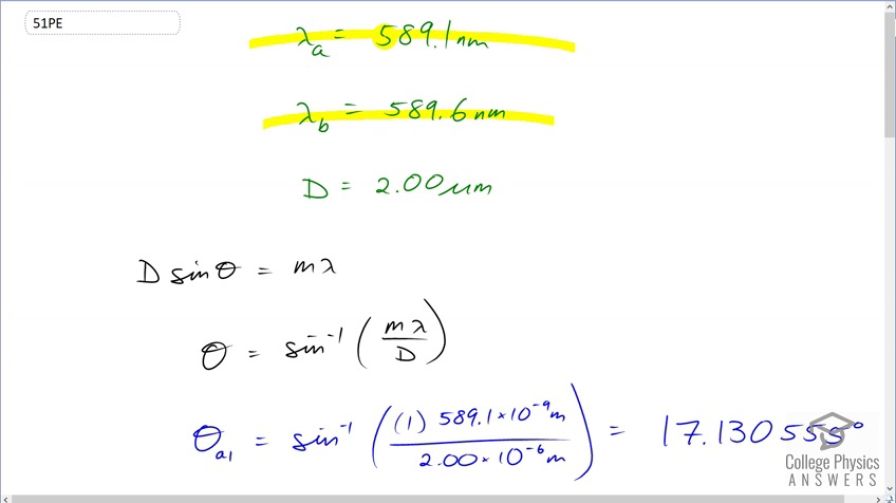 51PE
λa = 589.1nm
λb = 589.6nm
D = 2.00μm
D sinθ = mλ
θ = sin⁻¹ (mλ/D)
θa1 = sin⁻¹ ((1) 589.1×10⁻⁹m / 2.00×10⁻⁶m) = 17.130555°
College Physics
ANSWERS